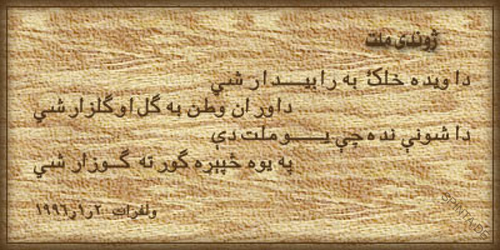 ژوندی ملت
دا ویده خلک به را بیـــدار شي
دا وران وطن به ګل او ګلزار شي
دا شونې نده چې یـــو ملت دې
په یوه څپېړه ګور ته ګـــوزار شي
ولفرات ۲ر۱ر۱۹۹۶